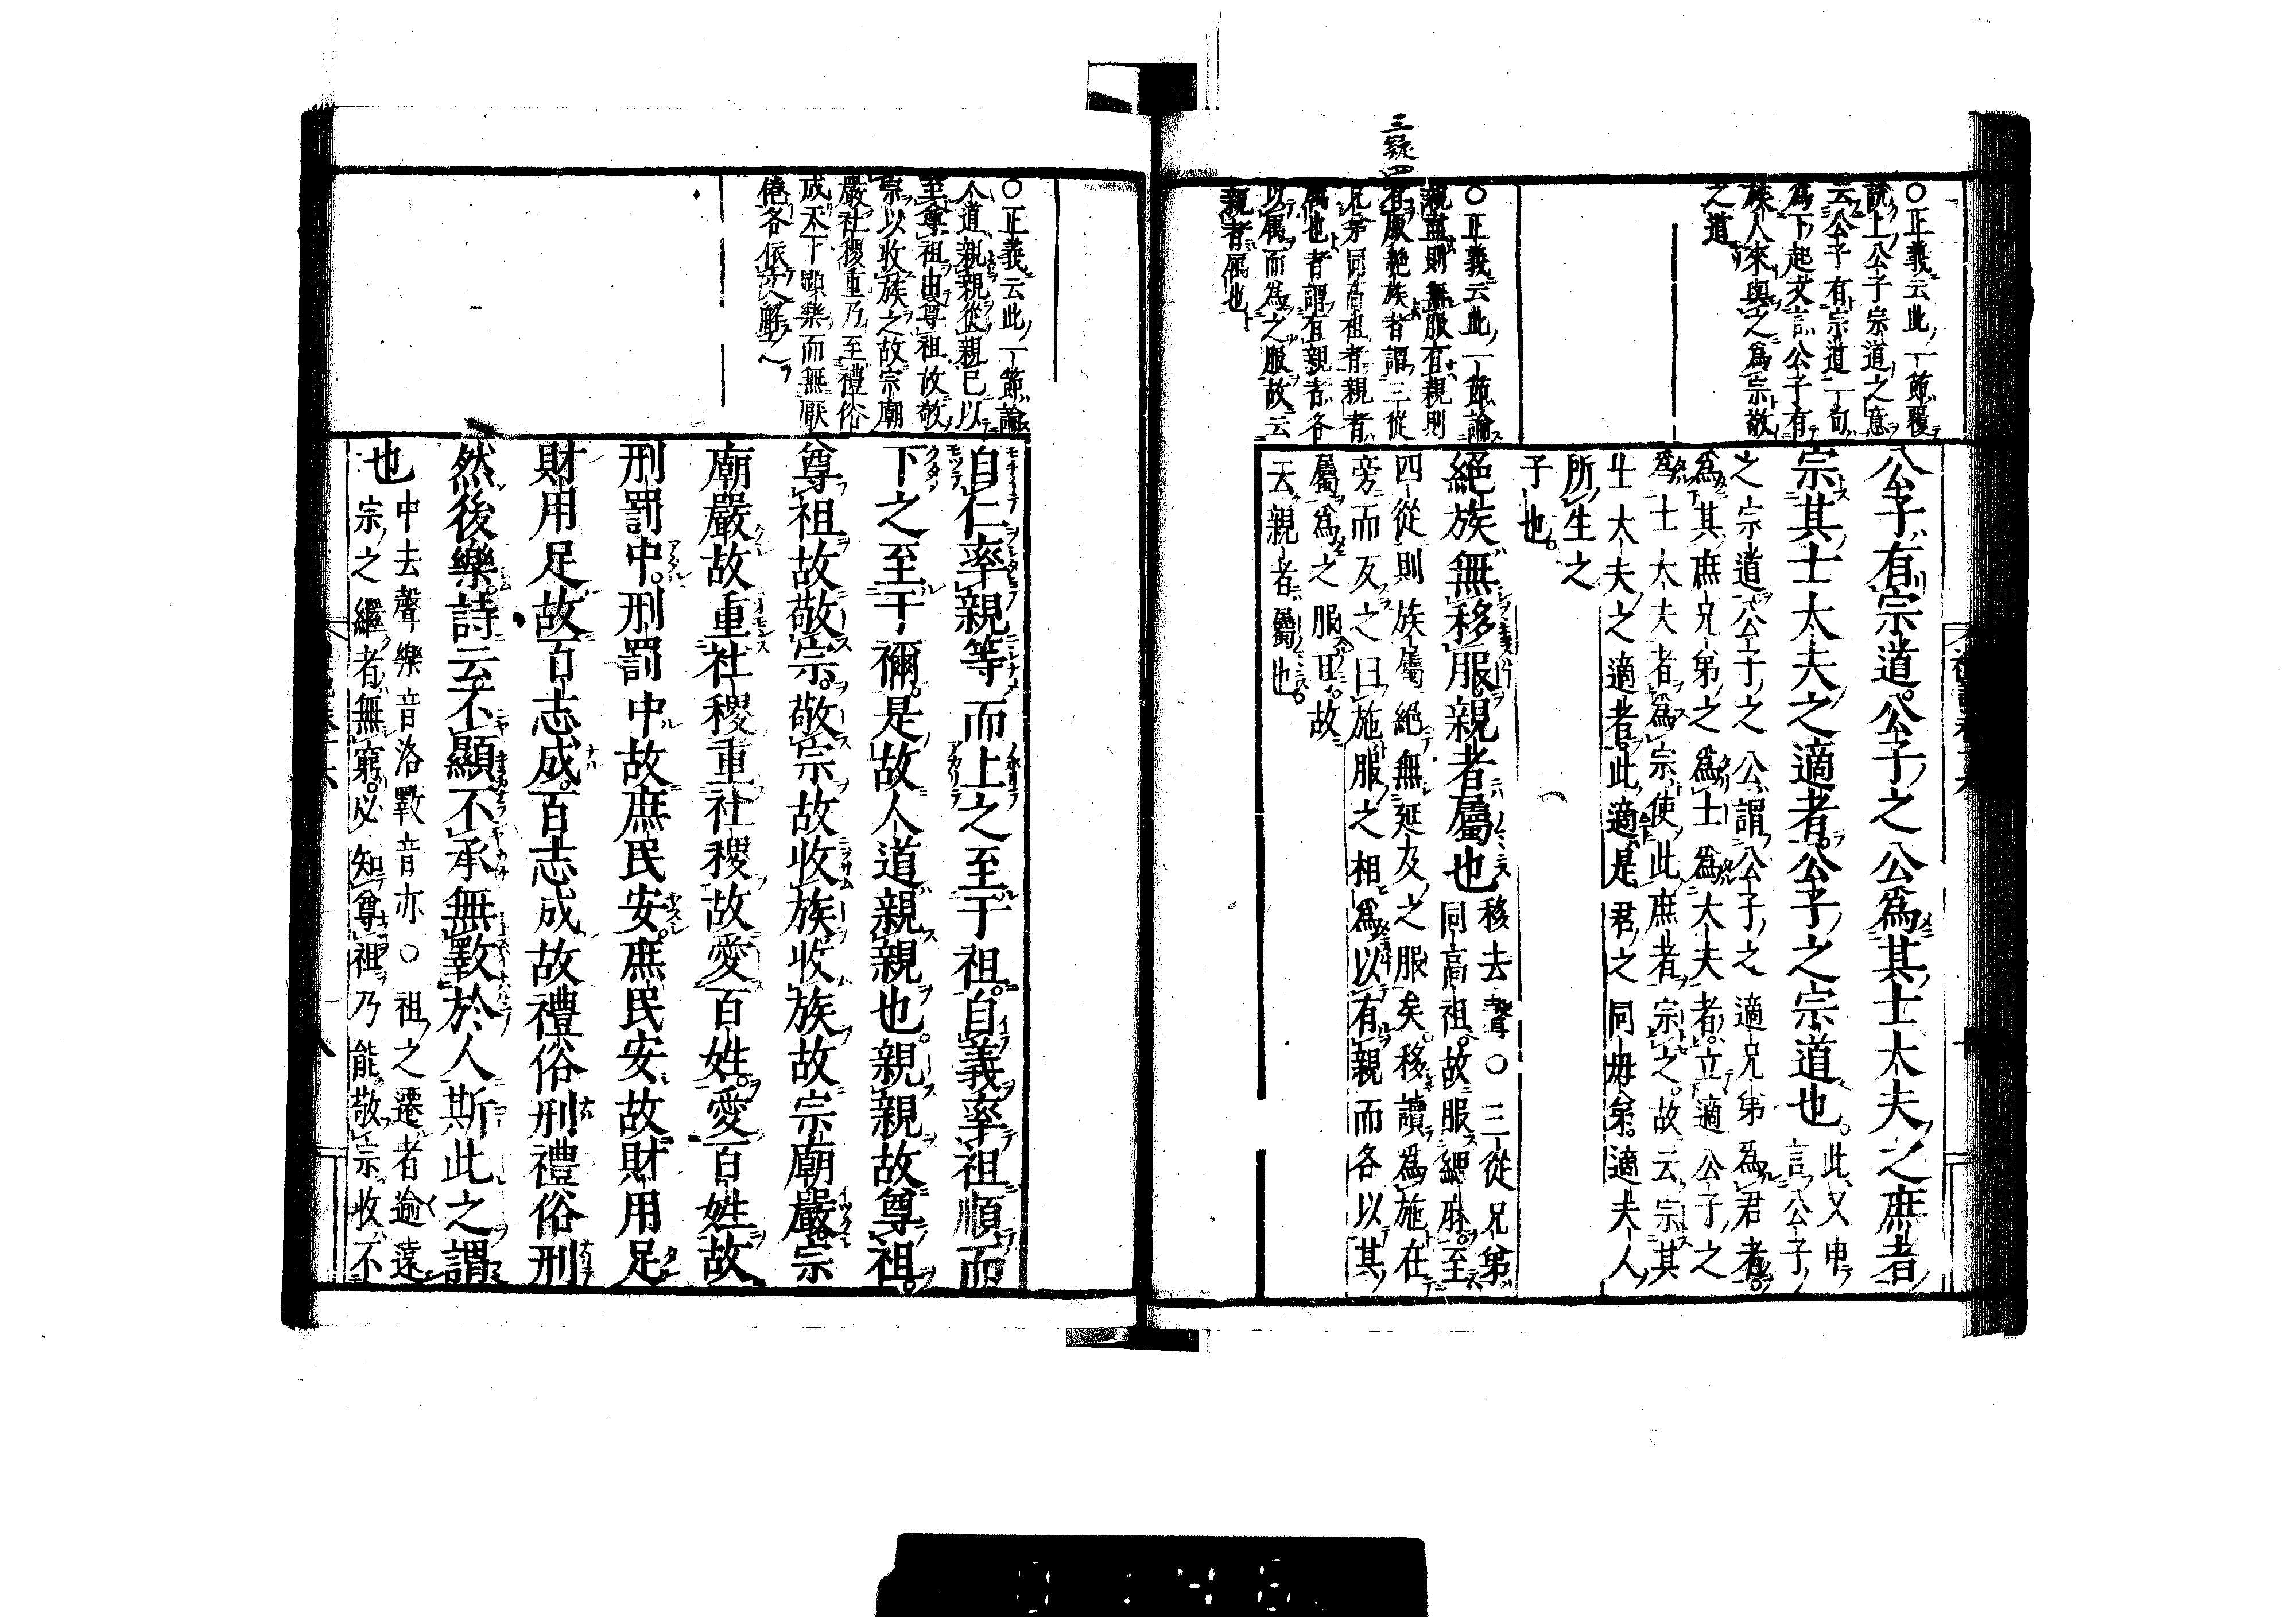 三疑四
○正義云此一節覆
說上公子宗道之意
云公子有宗道一句
為下起文言公子有
族人來與之為宗敬
之道
○正義云此一節論
親盡則無服有親則
有服絕族者謂三從
兄弟同高祖者親者
属也者謂有親者各
以属而為之服故云
親者属也
公子有宗道公子之公為其士大夫之庶者
宗其士大夫之適者公子之宗道也
此又申
言公子
之宗道公子之公謂公子之適兄弟為君者
為其庶兄弟之為士為大夫者立適公子之
為士大夫者為宗使此庶者宗之故云宗其
士大夫之適者此適是君之同母弟適夫人
所生之
子也
絕族無移服親者屬也
移去聲○三從兄弟
同高祖故服緦麻至
四從則族屬絕無延及之服矣移讀為施在
旁而及之曰施服之相為以有親而各以其
屬為之服耳故
云親者屬也
○正義云此一節論
人道親親從親已以
至尊祖由尊祖故敬
宗以收族之故宗廟
嚴社稷重乃至禮俗
成天下顯樂而無厭
倦各依文解之
自仁率親等而上之至于祖自義率祖順而
下之至于禰是故人道親親也親親故尊祖
尊祖故敬宗敬宗故收族收族故宗廟嚴宗
廟嚴故重社稷重社稷故愛百姓愛百姓故
刑罰中刑罰中故庶民安庶民安故財用足
財用足故百志成百志成故禮俗刑禮俗刑
然後樂詩云不顯不承無斁於人斯此之謂
也
中去聲樂音洛斁音亦○祖之遷者逾遠
宗之繼者無窮必知尊祖乃能敬宗收不